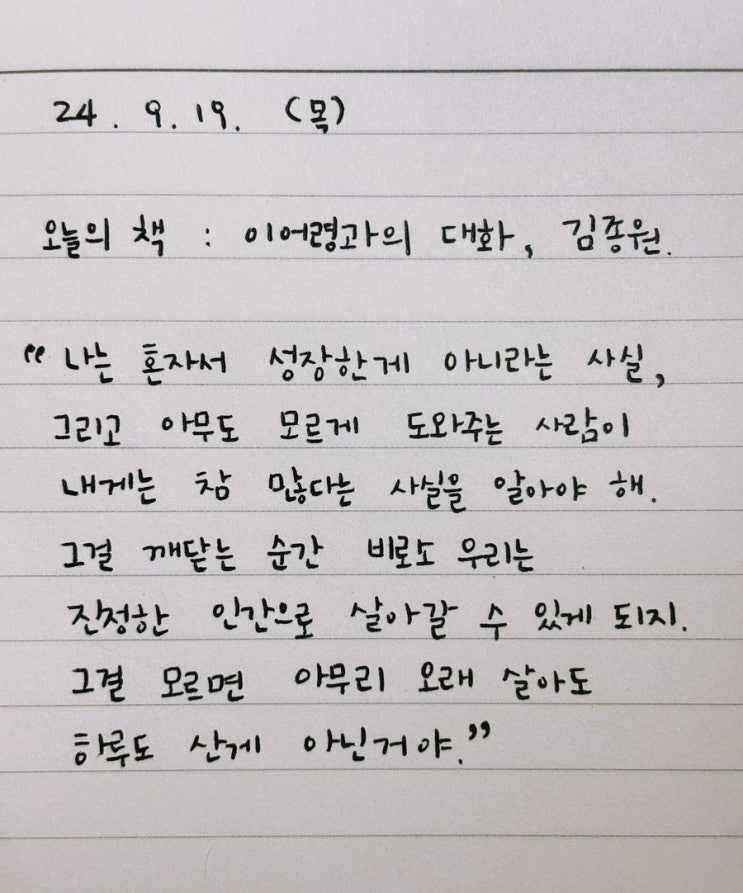 24. 9. 19. (목)
오늘의 책 : 이어령과의 대화, 김종원.
“ 나는 혼자서 성장한게 아니라는 사실,
그리고 아무도 모르게 도와주는 사람이
내게는 참 많다는 사실을 알아야 해.
그걸 깨닫는 순간 비로소 우리는
진정한 인간으로 살아갈 수 있게 되지.
그걸 모르면 아무리 오래 살아도
하루도 산게 아닌거야.”